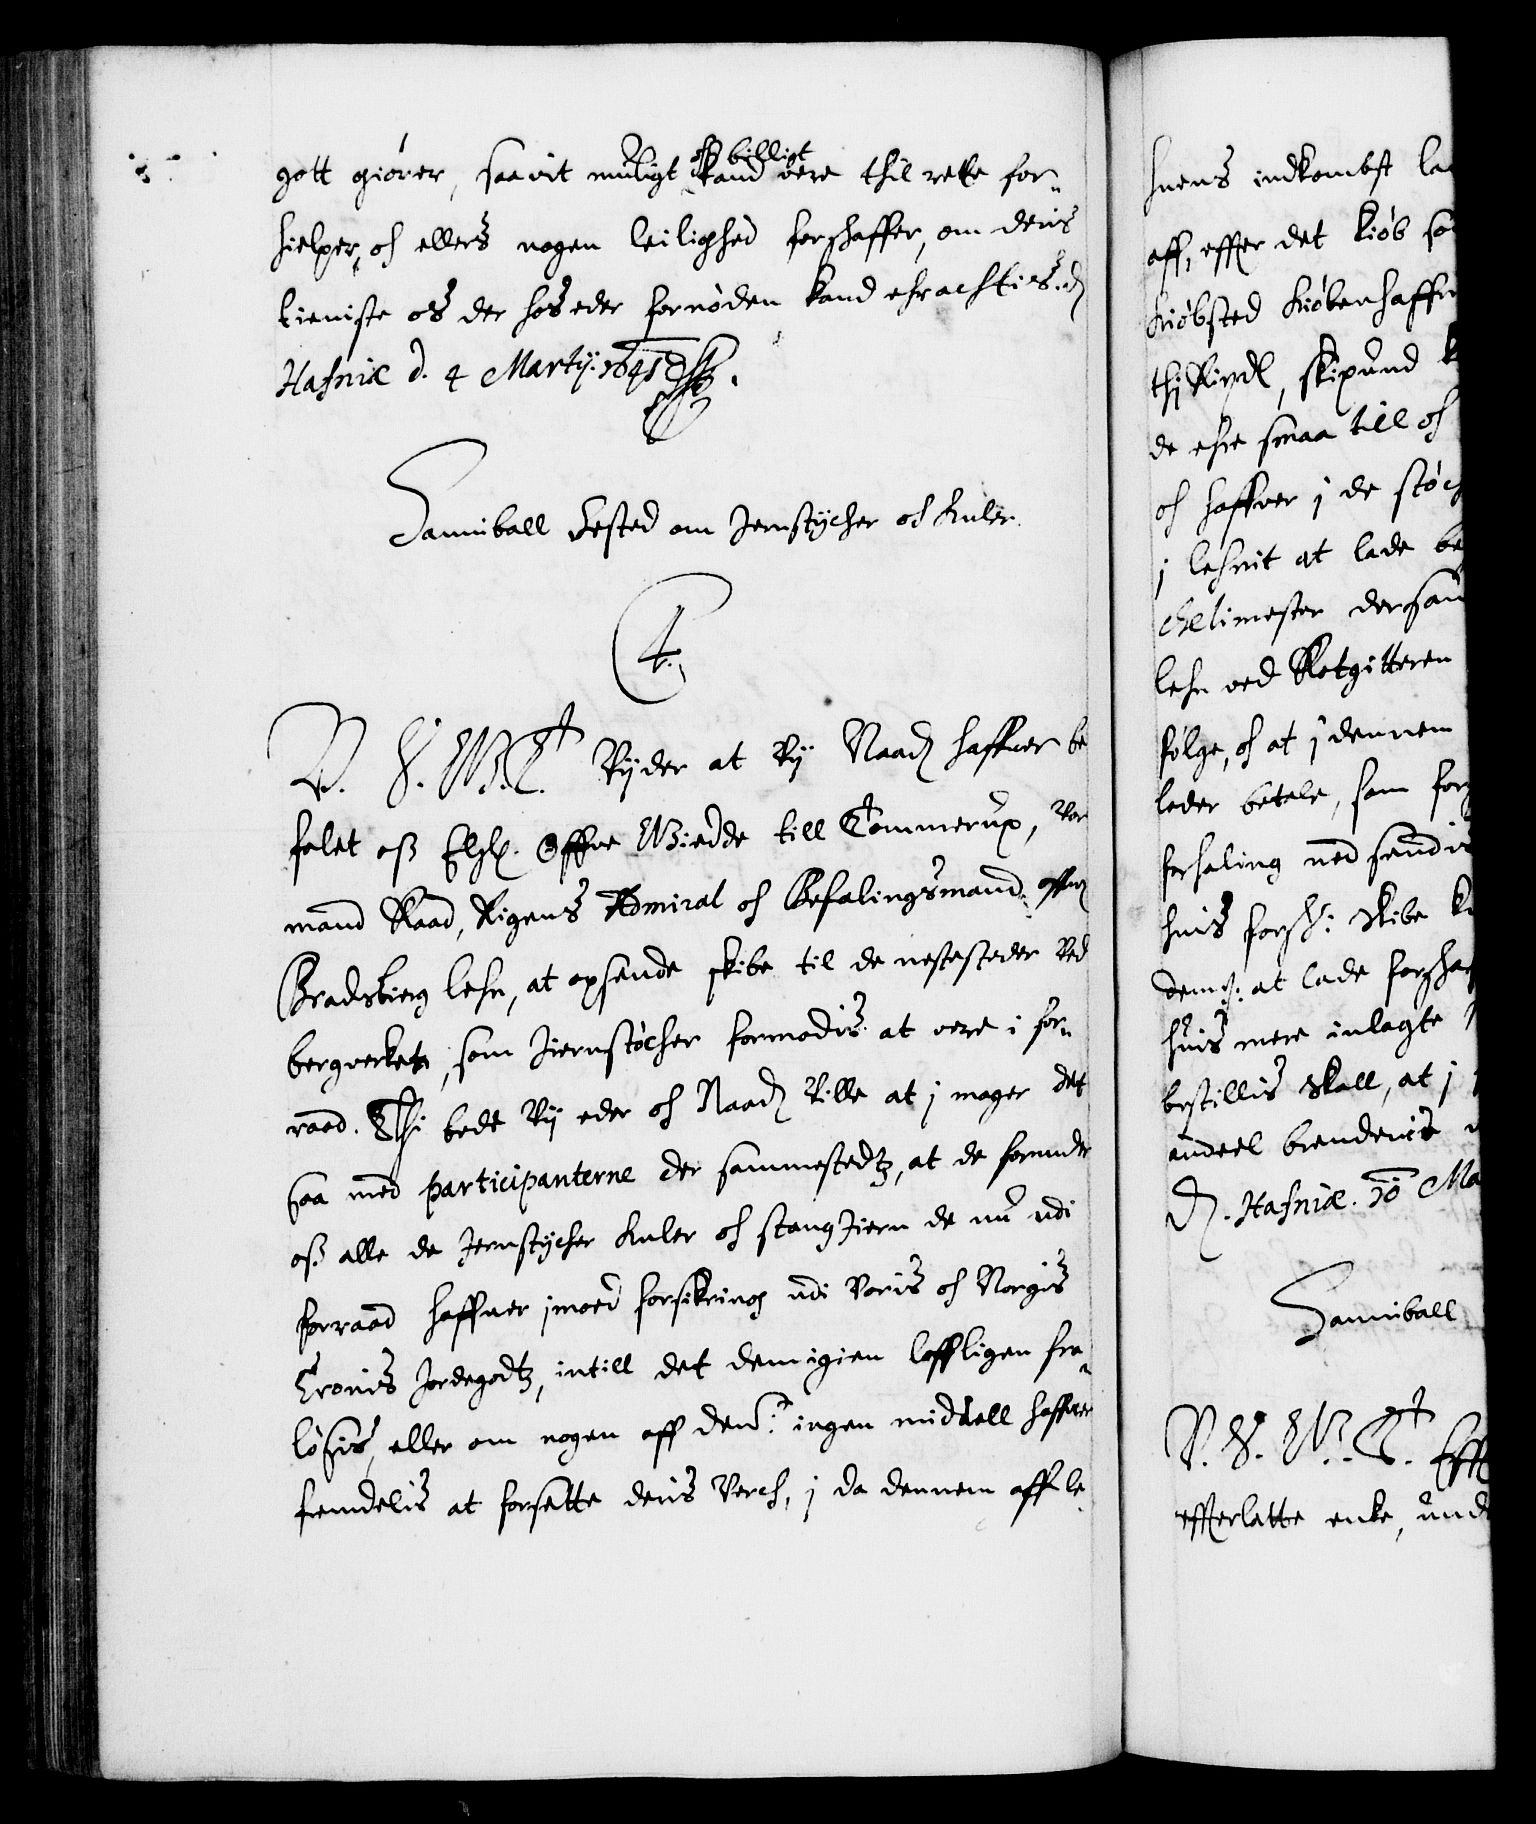 gott giörer, saavit muligt och billigt kand vere thil rette for-
hielper, och ellers nogen leilighed forschaffer, om deris
tieniste os der hos eder fornöden kand erachtis. d
Hafniæ d. 4 Martij. 1645
Hanniball Sested om Jernstycher och Kuler
C 4.
V. S. G. T. Vijder at Vij Naad haffver be
falet oss Elsk. Offve Giedde till Tommerup, vor
mand Raad, Rigens Admiral och Befalingsmand offver
Bradsbierg lehn, at opsende skibe til de nestesteder ved
bergverket, som Jiernstöcher formodis at vere i for-
raad. Thi bede Vij eder och Naad Ville at j mager det
saa med participanterne der sammestedtz, at de forunder
oss alle de Jernstycher Kuler och stang Jiern de nu udi
forraad haffver imoed forsikring udi Voris och Norgis
Cronis Jordegodtz, intill det dem igien loffligen fra-
lösis, eller om nogen aff dem: ingen middell haffver
fremdelis at forsette deris Verch, j da dennem affle-
huens indkombst la
aff, effter det kiöb so
Kiöbsted Kiöbenhaffn
thj Rixdl, skipund k
de ehre smaa till och
och haffver j de stöch
j lehnit at lade be
lehn ved Slotzitteren
fölge, och at j dennem
leder betale, som for
forhaling ned sendis
huis forsch: skibe k
dem: at lade forschaf
huis mere inlagte
bestillis skall, at j
andeel brenderie
D. Hafniæ. 10 Ma
Hanniball
V. S. G. T. Efft
effterlatte enke, und